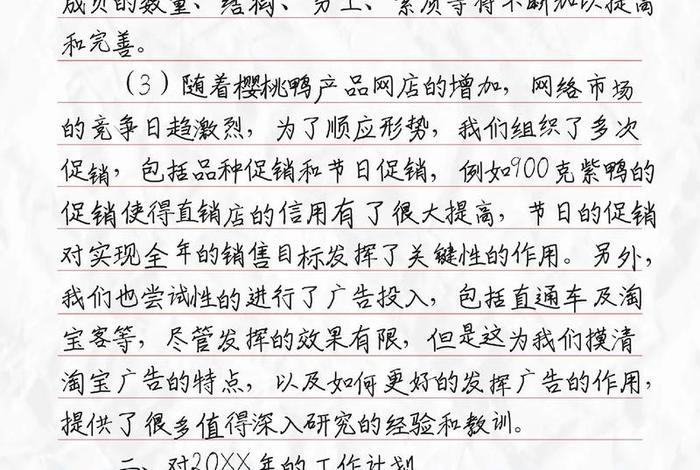 成员的数量、结构、分工、素质等得不断加以提高
和完善。
（3）随着樱桃鸭产品网店的增加，网络市场
的竞争日趋激烈，为了顺应形势，我们组织了多次
促销，包括品种促销和节日促销，例如900克紫鸭的
促销使得直销店的信用有了很大提高，节日的促销
对实现全年的销售目标发挥了关键性的作用。另外，
我们也尝试性的进行了广告投入，包括直通车及淘
宝客等，尽管发挥的效果有限，但是这为我们摸清
淘宝广告的特点，以及如何更好的发挥广告的作用，
提供了很多值得深入研究的经验和教训。
二、对20XX年的工作计划